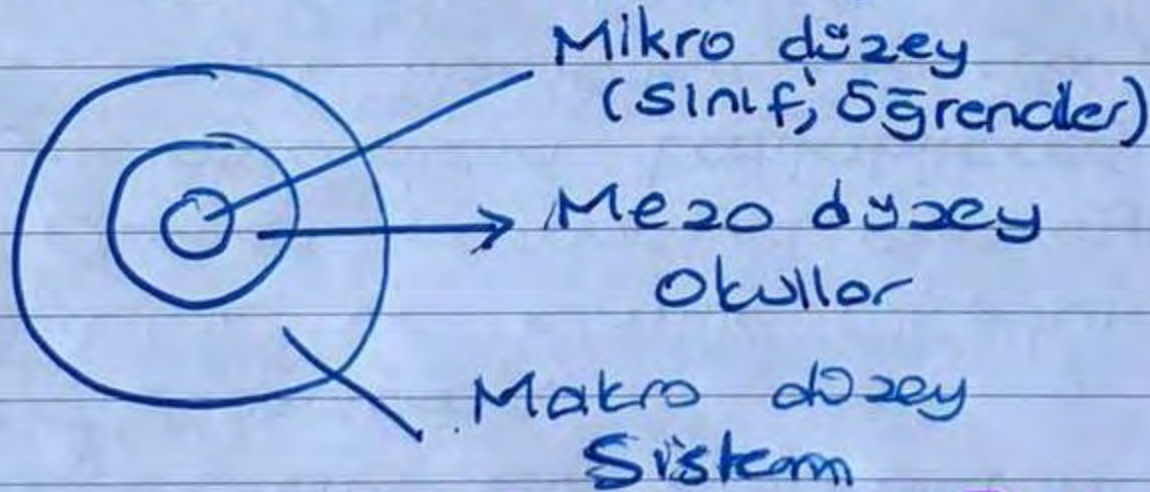 Mikro düzey
(sınıf, öğrenciler)
Mezo düzey
Okullar
Makro düzey
Sistem